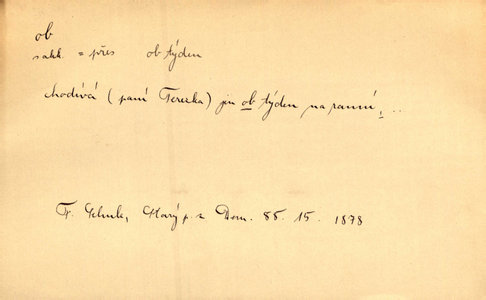 ob
s akk. = přes ob týden
chodívá (paní Terezka) jen ob týden na ranní, ..
Fr. Schulz, Starý p. z Dom. 88. 15. 1878